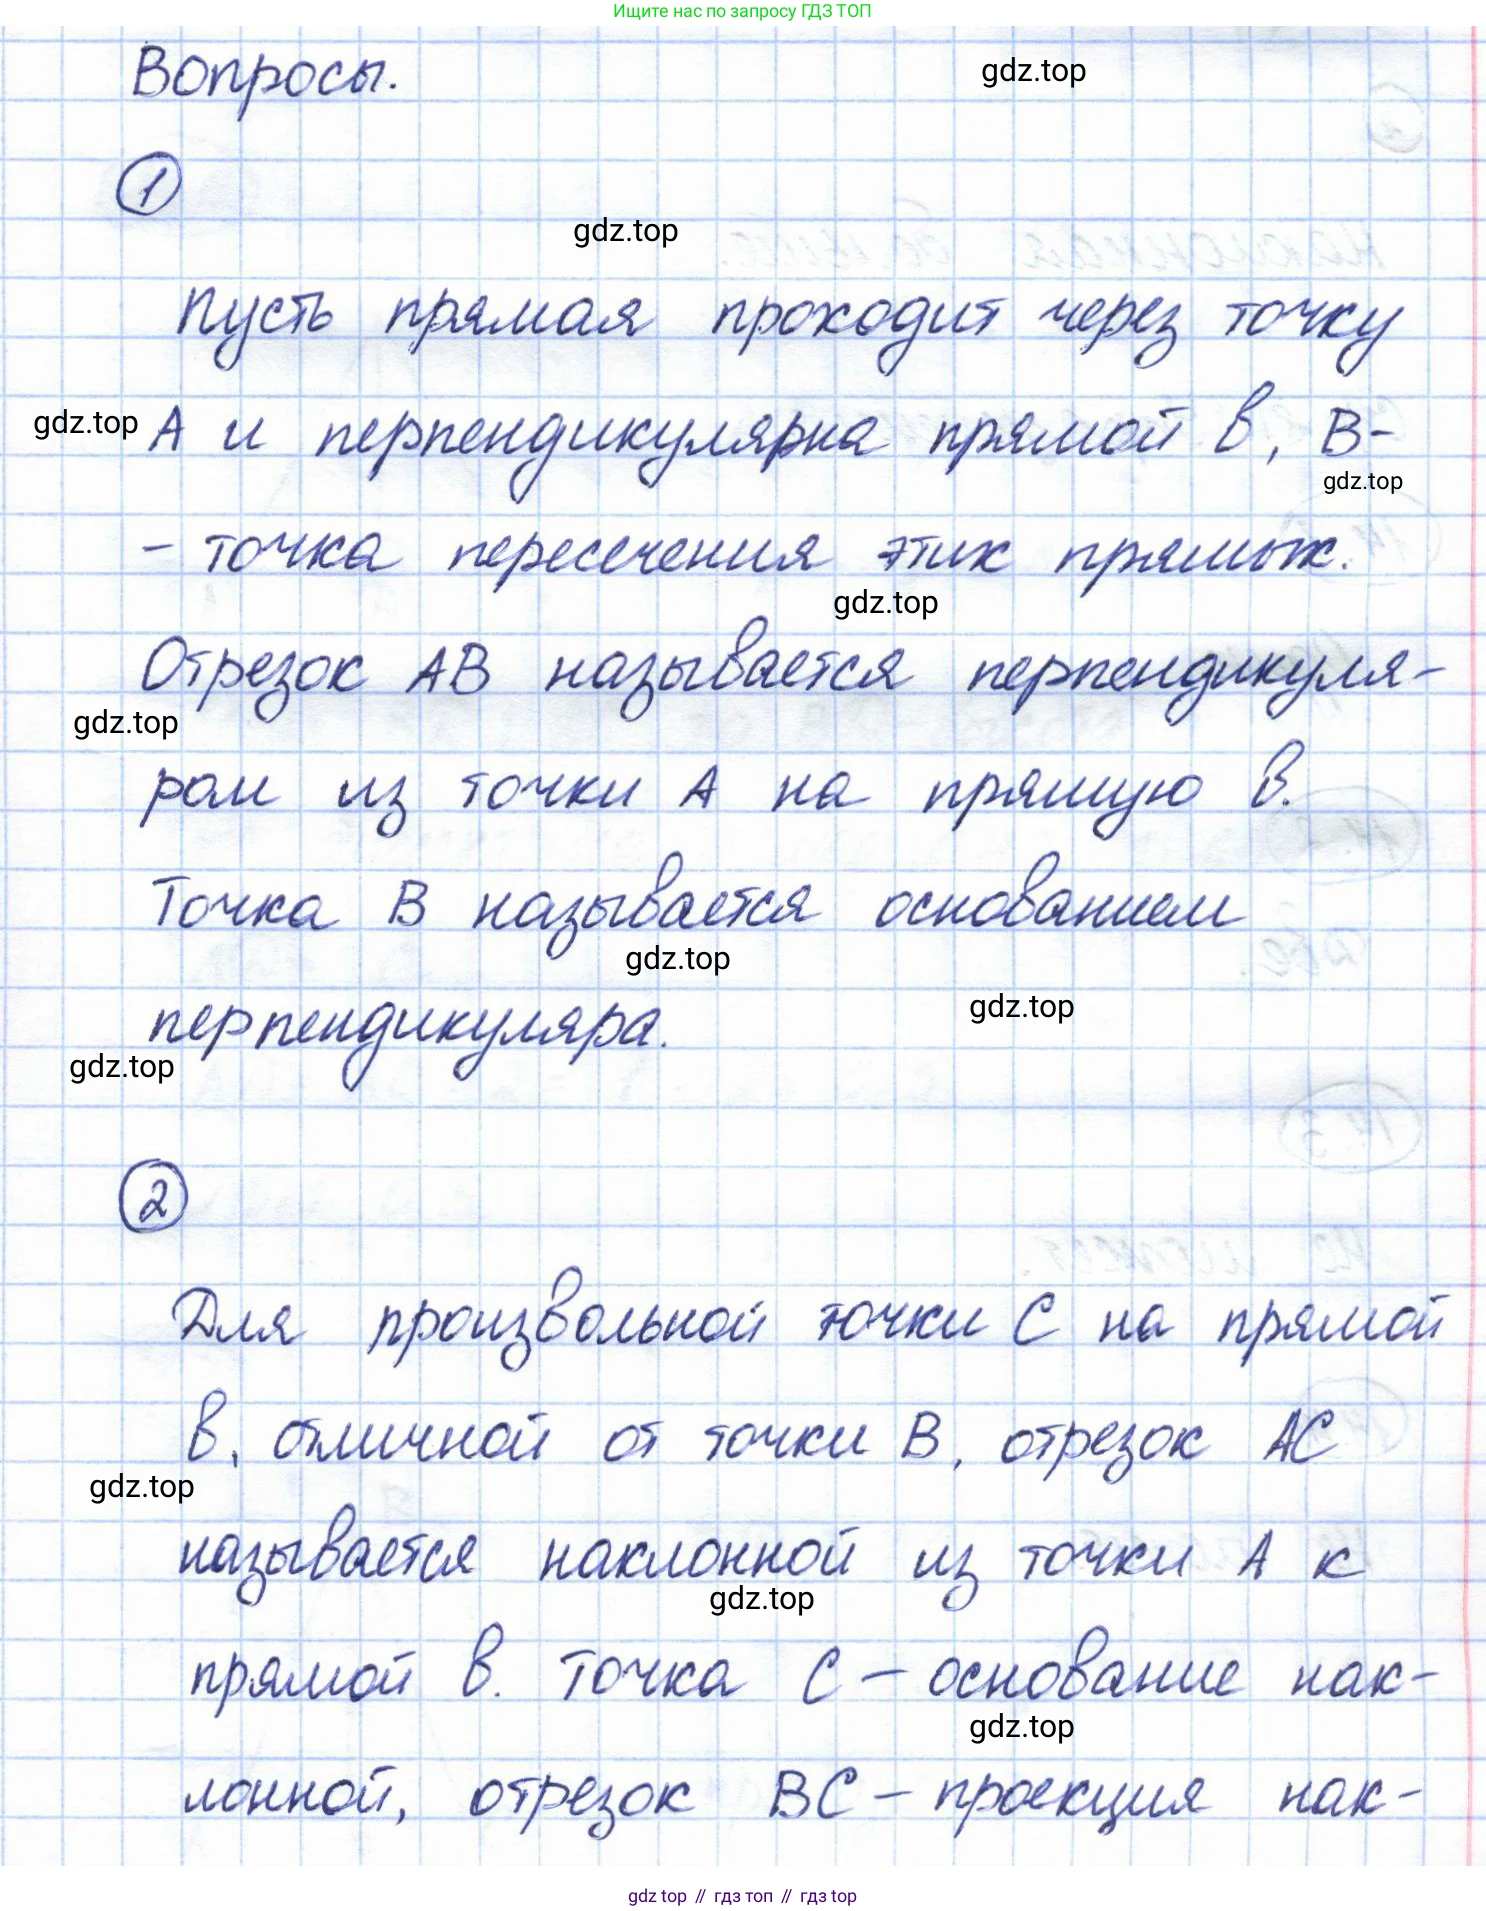 Ищите нас по запросу ГДЗ ТОП
Вопросы.
gdz.top
1
gdz.top
Пусть прямая проходит через точку
gdz.top
А и перпендикулярна прямой в, В-
gdz.top
- точка пересечения этих прямых.
gdz.top
Отрезок АВ называется перпендикуля-
gdz.top
ром из точки А на прямую в.
Точка В называется основанием
gdz.top
перпендикуляра.
gdz.top
gdz.top
2
Для произвольной точки С на прямой
в, отличной от точки В, отрезок АС
gdz.top
называется наклонной из точки А к
gdz.top
прямой в. Точка С – основание нак-
gdz.top
лонной, отрезок ВС – проекция нак-
gdz top // гдз топ // gdz top